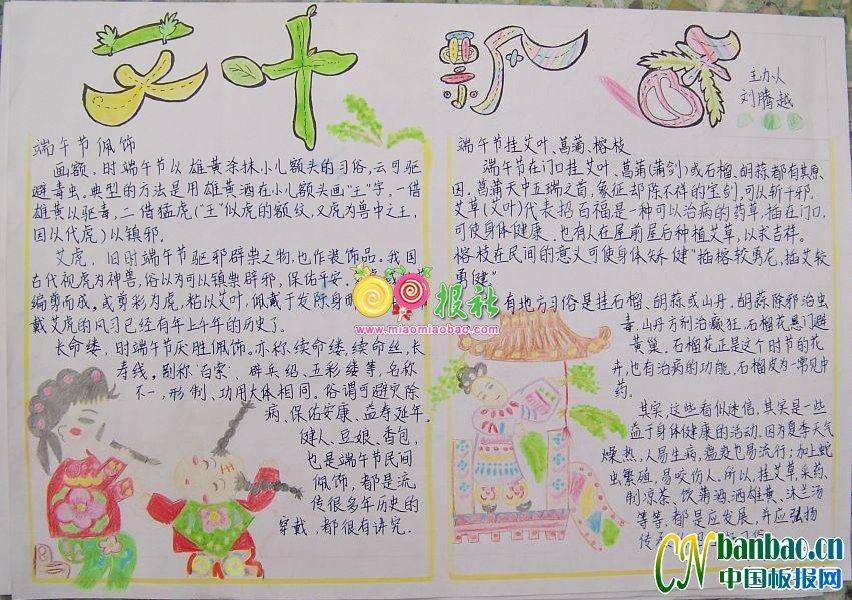 艾叶飘香
主办人
刘腾越
端午节佩饰
画额,时端午节以雄黄涂抹小儿额头的习俗,云可驱
避毒虫。典型的方法是用雄黄酒在小儿额头画"王"字,一借
雄黄以驱毒,二借猛虎("王"似虎的额纹,又虎为兽中之王,
因以代虎)以镇邪。
艾虎,旧时端午节驱邪辟祟之物,也作装饰品。我国
古代视虎为神兽,俗以为可以镇祟辟邪、保佑平安。
编剪而成,或剪彩为虎,粘以艾叶,佩戴于发际身
戴艾虎的风习已经有年上午年的历史了。
长命缕,时端午节厌胜佩饰。亦称续命缕,续命丝,长
寿线,别称"百索"、辟兵绍、五彩缕等,名称
不一,形制、功用大体相同。俗谓可避灾除
病、保佑安康、益寿延年。
健人、豆娘、香包,
也是端午节民间
佩饰,都是流
传很多年历史的
穿戴,都很有讲究。
端午节挂艾叶、菖蒲、榕枝
端午节在门口挂艾叶、菖蒲(蒲剑)或石榴、胡蒜都有其原
因。菖蒲天中五瑞之首,象征却除不祥的宝剑,可以斩千邪。
艾草(艾叶)代表招百福是一种可以治病的药草,插在门口,
可使身体健康。也有人在屋前屋后种植艾草,以求吉祥。
榕枝在民间的意义可使身体矫健"插榕较勇龙,插艾较
勇健"
有地方习俗是挂石榴、胡蒜或山丹,胡蒜除邪治虫
毒,山丹方剂治癫狂。石榴花悬门避
黄巢。石榴花正是这个时节的花
卉,也有治病的功能,石榴皮为一常见中
药。
其实,这些看似迷信,其实是一些
益于身体健康的活动。因为夏季天气
燥热,人易生病,瘟疫也易流行;加上蛇
虫繁殖,易咬伤人,所以,挂艾草,采药、
制凉茶、饮蒲酒,洒雄黄、沐兰汤
等等,都是应发展,并应弘扬
传
报社
www.miaomiaobao.com
CNbanbao.cn
中国板报网